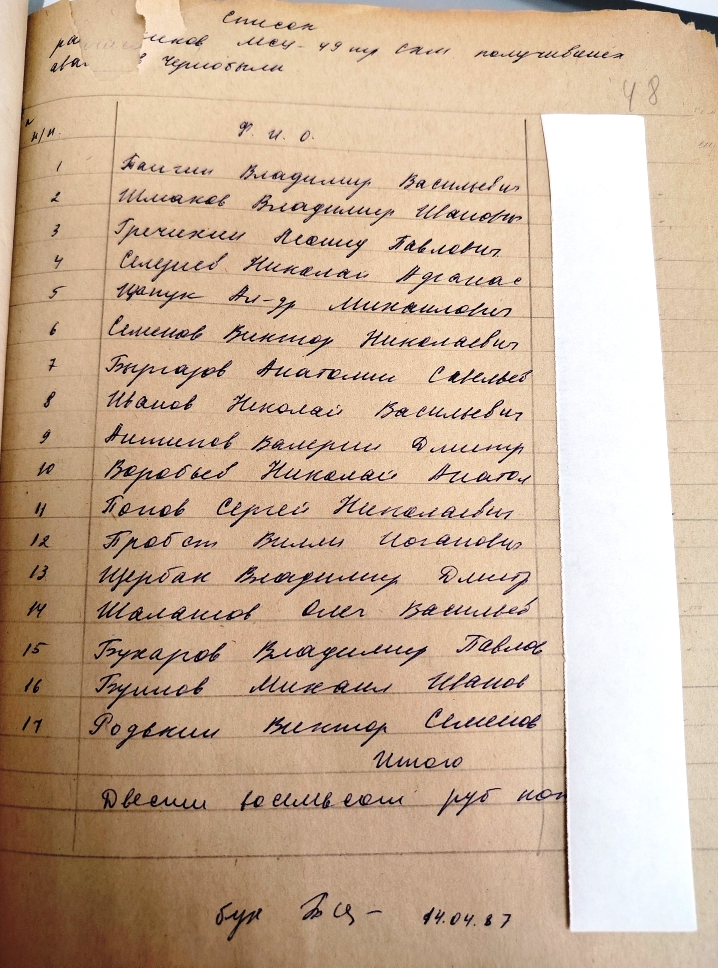 Список
МСЧ-49 тр СХМ получивших
Чернобыли
48
н/п. Ф. И. О.
1 Паигин Владимир Васильевич
2 Шмаков Владимир Иванович
3 Гречихин Леонид Павлович
4 Селезнев Николай Афанас
5 Цапук Ал-др Михаилович
6 Семенов Виктор Николаевич
7 Анатолии Савельев
8 Иванов Николай Васильевич
9 Антипов Валерии Дмитр
10 Воробьев Николай Анатол
11 Попов Сергей Николаевич
12 Пробст Вилли Иоганович
13 Щербак Владимир Дмитр
14 Шалашов Олег Васильев
15 Бухаров Владимир Павлов
16 Михаил Иванов
17 Родькин Виктор Семенов
Итого
Двести восемьсот руб коп
бух 14.04.87